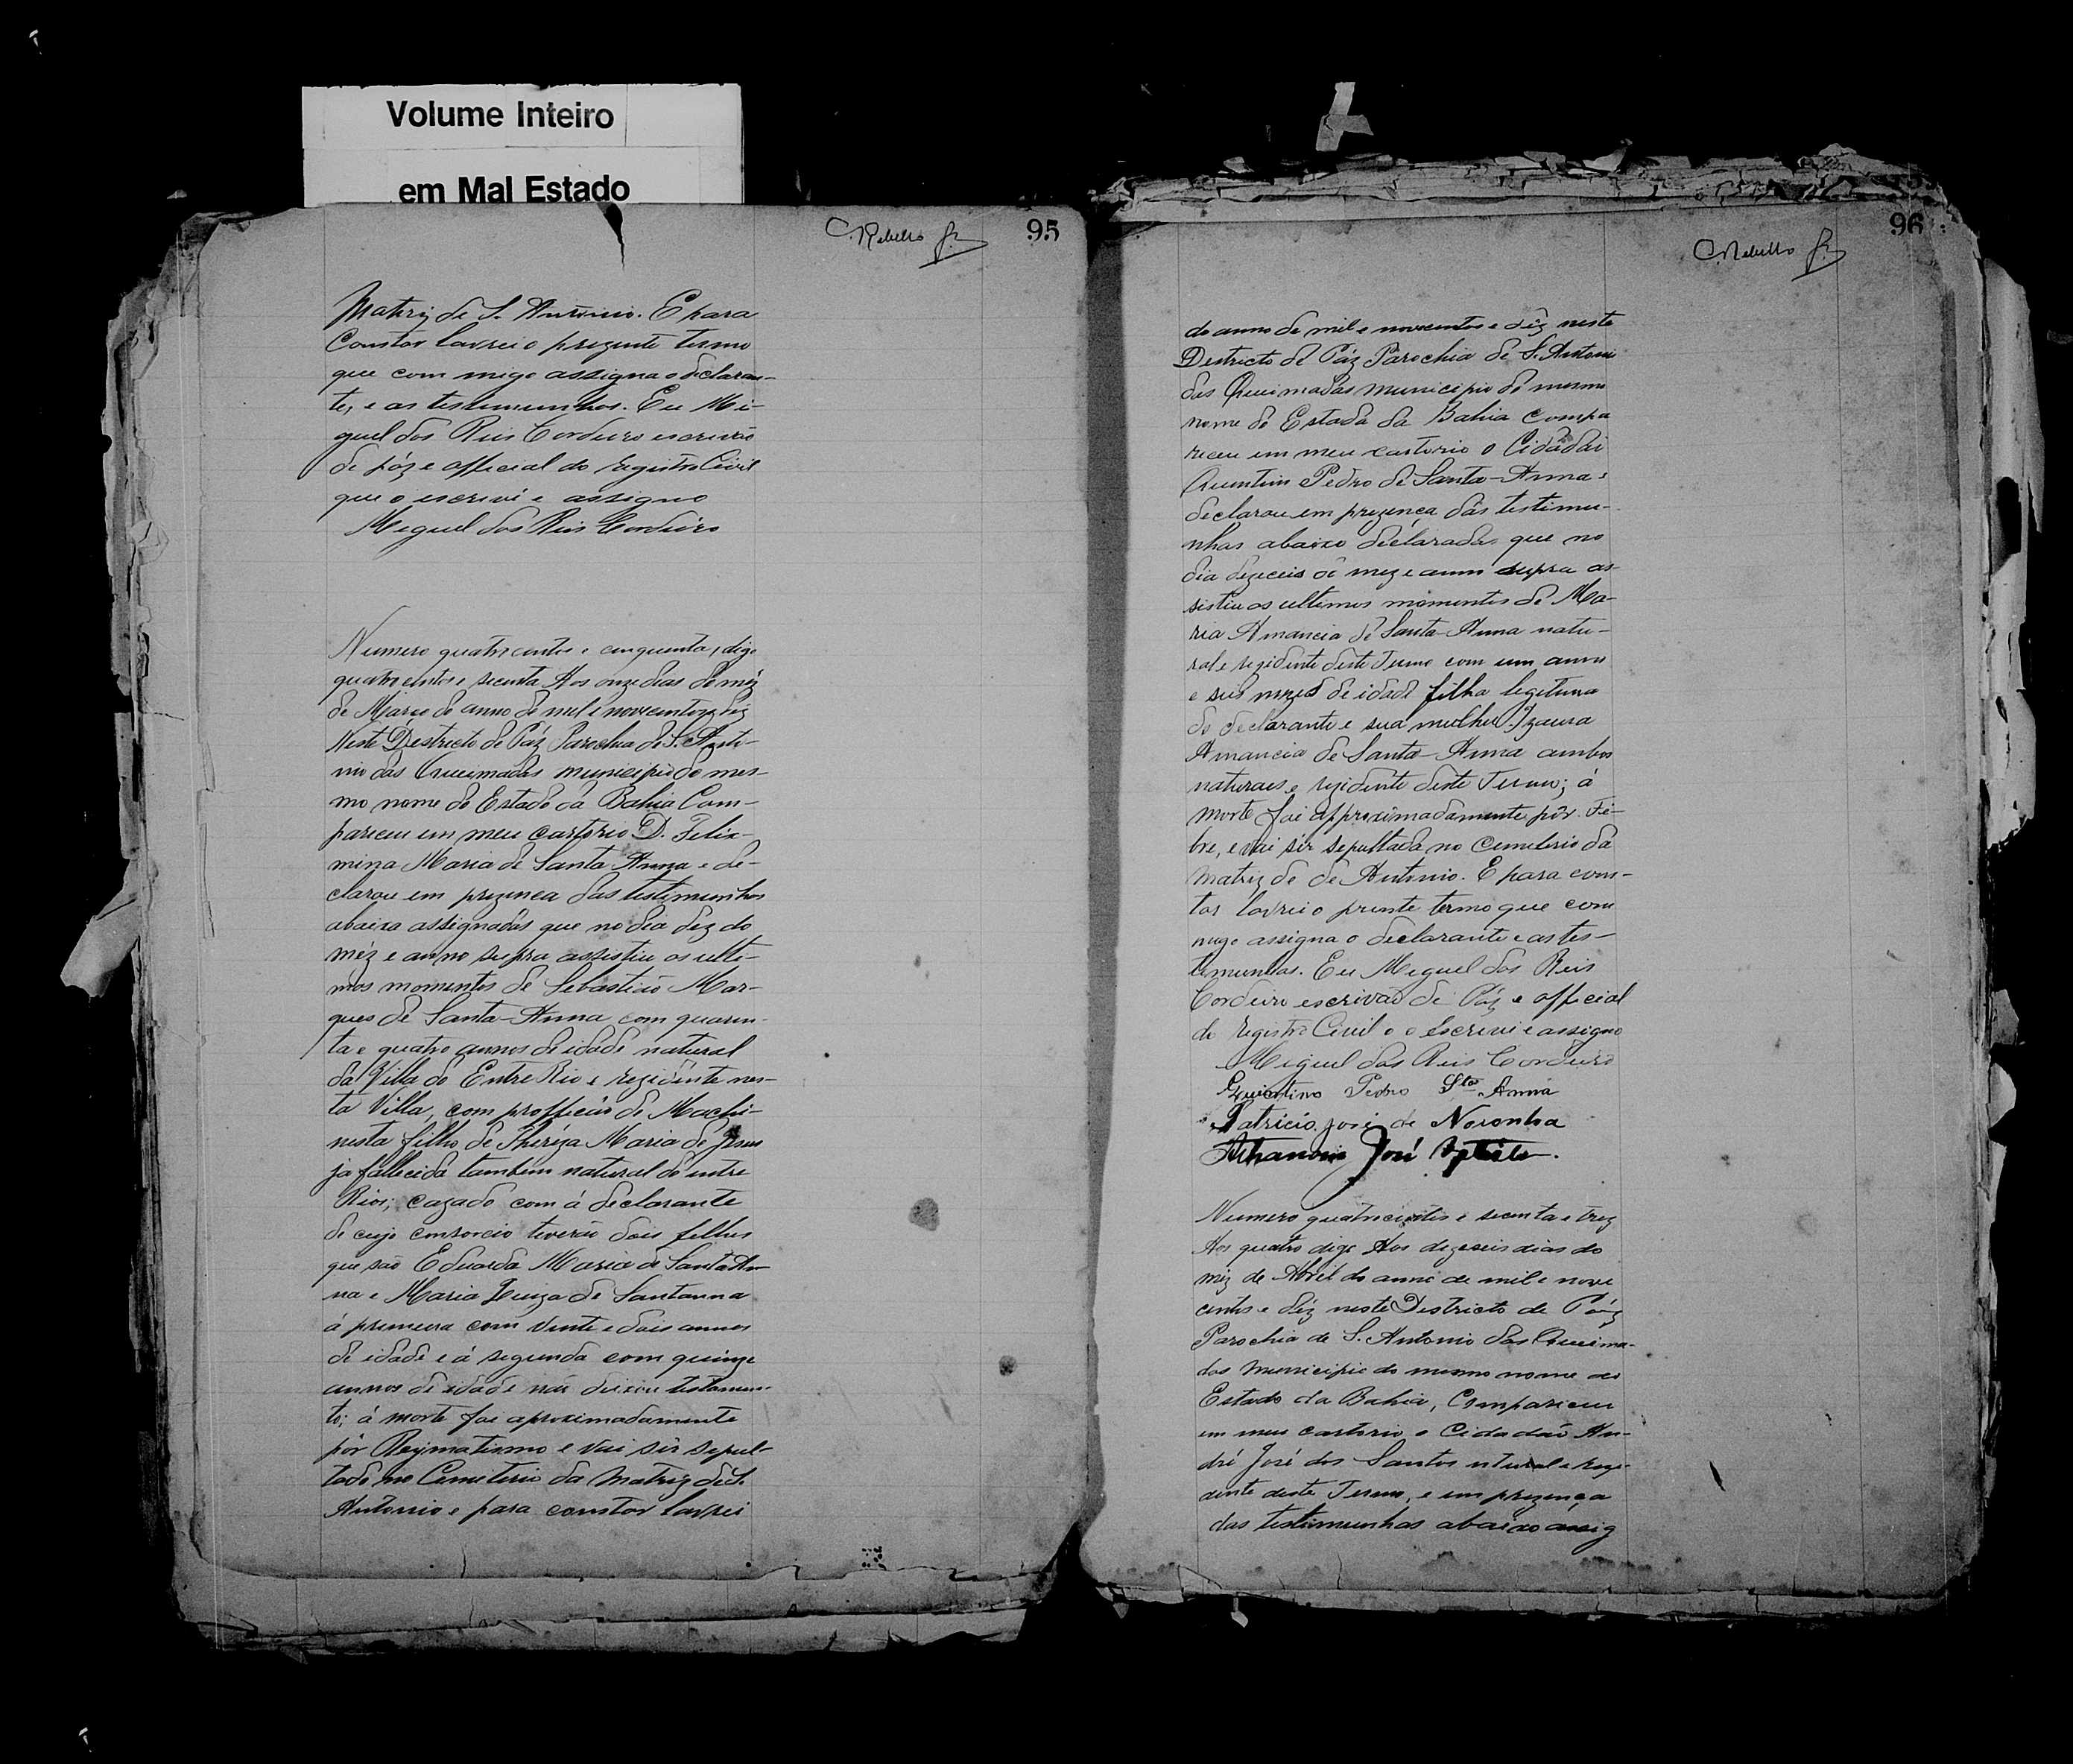 Volume Inteiro
em Mal Estado
C. Rebello Jr.
95
Matriz de S. Antonio. E para
Constar lavrei o prezente termo
que com migo assigna o declaran-
te, e as testemunhas. Eu Mi-
guel dos Reis Cordeiro escrivão
de páz e official do registro Civil
que o escrivi e assigno
Miguel dos Reis Cordeiro
Numero quatrocentos e cinquenta, digo
quatrocentos e secenta Aos onze dias do méz
de Março do anno de mil e novecentos e dez
Neste Destricto de Páz Parochia de S. Anto-
nio das Queimadas municipio do mes-
mo nome do Estado da Bahia Com-
pareceu em meu Cartorio D. Felix-
mina Maria de Santa Anna e de-
clarou em prezenca das testimunhas
abaixo assignadas que no dia dez do
méz e anno supra assistiu os ulti-
mos momentos de Sebastião Mar-
ques de Santa-Anna com quaren-
ta e quatro annos de idade natural
da Villa do Entre Rio e rezidente nes-
ta Villa, com proffição de Machi-
nista filho de Thereza Maria de Jesus
ja fallecida tambem natural de entre
Rios; cazado com á declarante
de cujo consorcio teverão dois filhos
que são Eduarda Maria de Santa An
na e Maria Luiza de Santanna
á premeira com vinte e dois annos
de idade e á segunda com quinze
annos de idade não deixou testamen-
to; á morte foi aproximadamente
pôr Reymatismo e vai sêr sepul-
tado no Cemiterio da Matriz de S.
Antonio e para constar lavrei
C. Rebello Jr.
96
do anno de mil e novecentos e déz neste
Destricto de Páz Parochia de S. Antoni
das Queimadas municipio do mesmo
nome do Estado da Bahia compa
receu em meu cartorio o Cidadão
Quentin Pedro de Santa-Anna e
declarou em prezenca das testimu-
nhas abaixo declaradas que no
dia dezeceis do mez e anno supra as-
sistiu os ultimos momentos de Ma-
ria Amancia de Santa-Anna natu-
ral e rezidente deste Termo com um anno
e seis mezes de idade filha legitima
do declarante e sua mulher Izaura
Amancia de Santa-Anna ambos
naturaes e rezidente deste Termo; á
morte foi approximadamente pôr Fe-
bre, e vai sêr sepultada no Cemiterio da
Matriz de de Antonio. E para cons-
tar lavrei o prente termo que com
migo assigna o declarante e as tes-
temunhas. Eu Miguel dos Reis
Cordeiro escrivão de Páz e official
do registro Civil o o escrivi e assigno
Miguel dos Reis Cordeiro
Quintino Pedro Sta Anna
Patricio José de Noronha
José
Numero quatrocentos e secenta e trez
Aos quatro digo Aos dezeseis dias do
mez de Abril do anno de mil e nove
centos e déz neste Districto de Páz
Parochia de S. Antonio das Queima-
das Municipio do mesmo nome do
Estado da Bahia, Compareceu
em meu cartorio o Cidadão An-
dré José dos Santos ntural e rezi-
dente deste Termo, e em prezença
das testimunhas abaixo assig